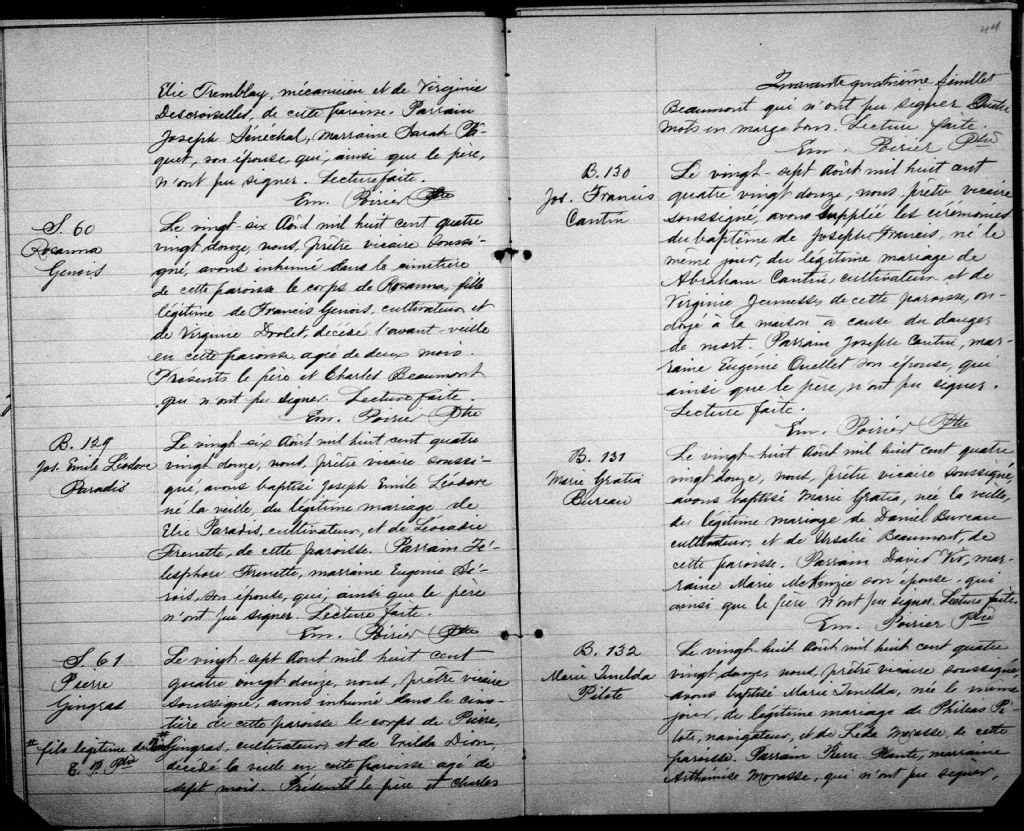 Elie Tremblay, mécanicien et de Virginie
Descroiselles, de cette paroisse. Parrain
Joseph Sénéchal, marraine Sarah Pâ-
quet, son épouse, qui, ainsi que le père,
n'ont pu signer. Lecture faite.
Em. Poirier Ptre
S. 60
Rosanna
Genois
Le vingt-six Août mil huit cent quatre
vingt douze, nous, prêtre vicaire soussi-
gné, avons inhumé dans le cimetière
de cette paroisse le corps de Rosanna, fille
légitime de Francis Genois, cultivateur, et
de Virginie Drolet, décédé l'avant-veille
en cette paroisse, agée de deux mois.
Présents le père et Charles Beaumont
qui n'ont pu signer. Lecture faite.
Em. Poirier Ptre
B. 129
Jos. Emile Léodore
Paradis
Le vingt-six Août mil huit cent quatre
vingt douze, nous, prêtre vicaire soussi-
gné, avons baptisé Joseph Emile Léodore
né la veille, du légitime mariage de
Elie Paradis, cultivateur, et de Léocadie
Frenette, de cette paroisse. Parrain Té-
lesphore Frenette, marraine Eugenie
son épouse, qui, ainsi que le père
n'ont pu signer. Lecture faite.
Em. Poirier Ptre
S. 61
Pierre
Gingras
Le vingt-sept Août mil huit cent
quatre vingt douze, nous, prêtre vicaire
soussigné, avons inhumé dans le cime-
tière de cette paroisse le corps de Pierre,
# fils légitime de
E. P. Ptre
# Gingras, cultivateur, et de Exilda Dion,
décédé la veille en cette paroisse agé de
sept mois. Présents le père et Charles
44
Quarante quatrième feuillet
Beaumont qui n'ont pu signer Quatre
mots en marge bons. Lecture faite.
Em. Poirier Ptre
B. 130
Jos. Francis
Cantin
Le vingt-sept Août mil huit cent
quatre vingt douze, nous prêtre vicaire
soussigné, avons suppléé les cérémonies
du baptême de Joseph Francis, né le
même jour, du légitime mariage de
Abraham Cantin, cultivateur et de
Virginie Jennesse, de cette paroisse, on-
doyé à la maison à cause du danger
de mort. Parrain Joseph Cantin, mar-
raine Eugénie Ouellet son épouse, qui
ainsi que le père, n'ont pu signer.
Lecture faite.
Em. Poirier Ptre
B. 131
Marie Gratia
Bureau
Le vingt-huit Août mil huit cent quatre
vingt douze, nous, prêtre vicaire soussigné,
avons baptisé Marie Gratia, née la veille,
du légitime mariage de Daniel Bureau
cultivateur, et de Ursulie Beaumont, de
cette paroisse. Parrain David mar-
raine Marie McKenzie son épouse, qui
ainsi que le père n'ont pu signer. Lecture faite.
Em. Poirier Ptre
B. 132
Marie Imelda
Pilote
Le vingt huit Août mil huit cent quatre
vingt douze, nous, prêtre vicaire soussigné,
avons baptisé Marie Imelda, née le même
jour, du légitime mariage de Philéas Pi-
lote, navigateur, et de Léda Morasse, de cette
paroisse. Parrain Pierre Plante, marraine
Arthémise Morasse, qui n'ont pu signer,